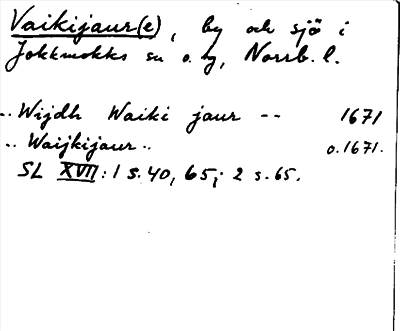 Vaikijaur(e), by och sjö i
Jokkmokks sn o. tg, Norrb. l.
.. Wijdh Waiki jaur -- 1671
.. Waijkijaur .. o. 1671.
SL XVII: 1 s. 40, 65; 2 s. 65.